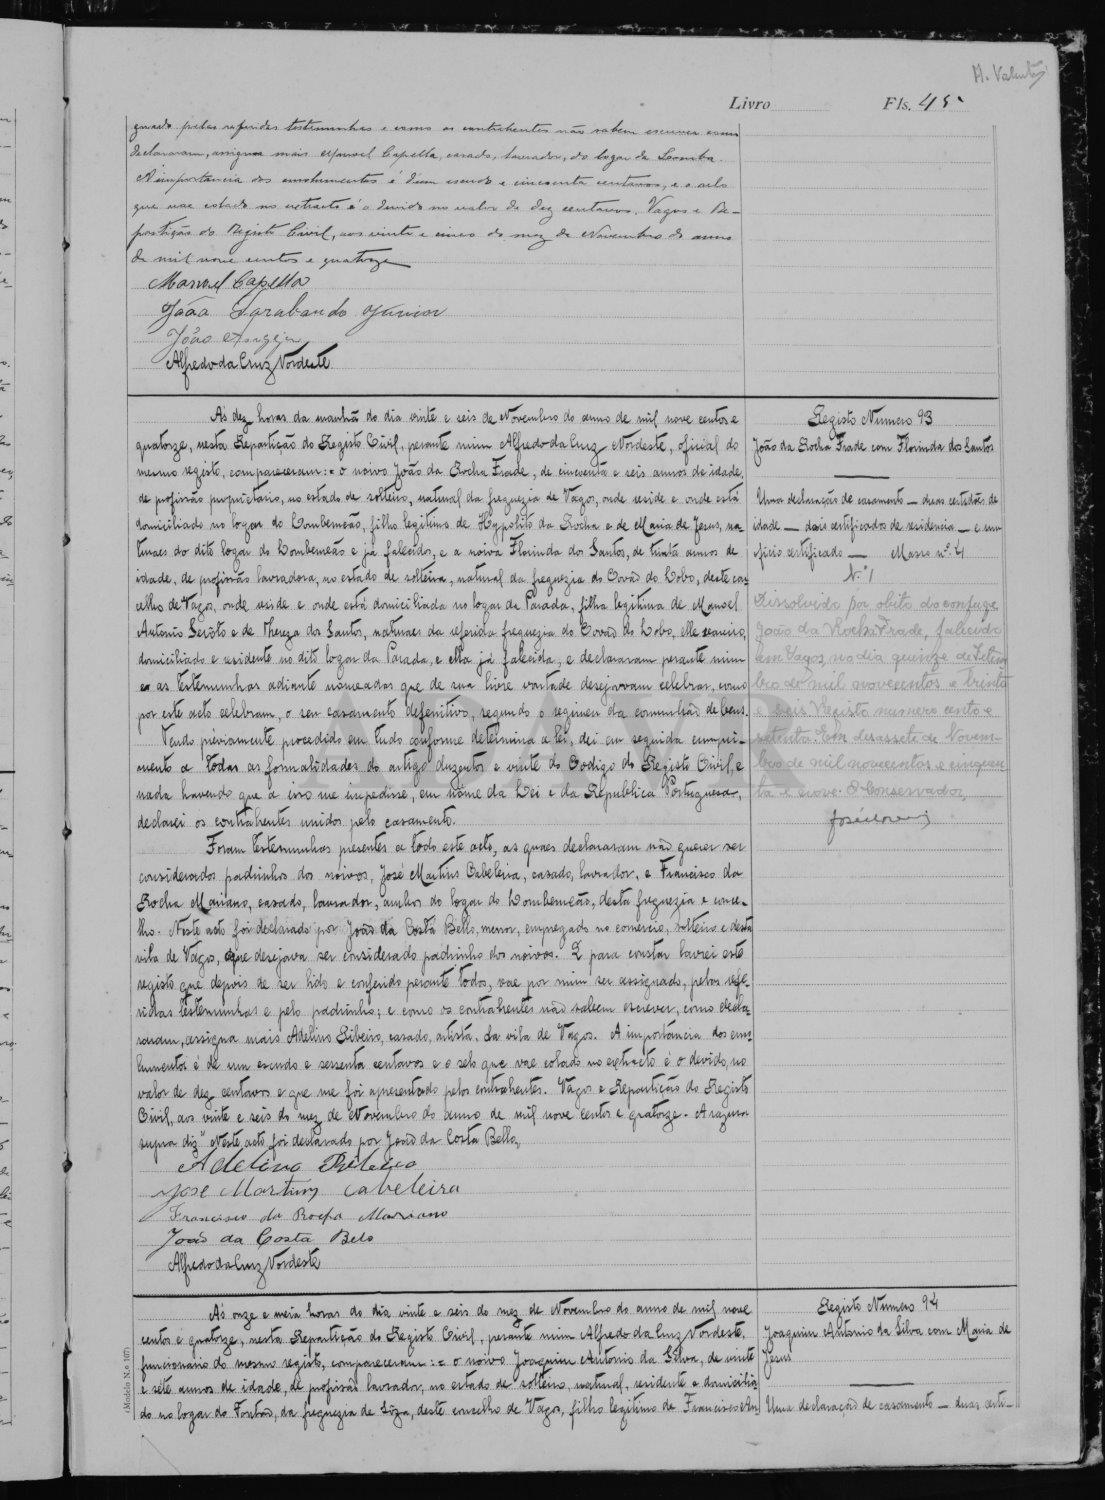 H. Valentim
Livro Fls. 45
guado pelas referidas testemunhas e como os contrahentes não sabem escrever como
declararam, assigna mais Manuel Capella, casado, lavrador, do logar de Lomba.
A importancia dos emolumentos é d'um escudo e cincoenta centavos, e o sello
que vae colado no extracto é o devido no valor de dez centavos. Vagos e Re-
partição do Registo Civil, aos vinte e cinco do mez de Novembro do anno
de mil nove centos e quatorze
Manuel Capella
João Sarabando Junior
João
Alfredo da Cruz Nordeste
Ás dez horas da manhã do dia vinte e seis de Novembro do anno de mil nove centos e
quatorze, nesta Repartição do Registo Civil, perante mim Alfredo da Cruz Nordeste, oficial do
mesmo registo, compareceram:= o noivo João da Rocha Frade, de cincoenta e seis annos de idade,
de profissão proprietario, no estado de solteiro, natural da freguezia de Vagos, onde reside e onde está
domiciliado no logar do Lombomeão, filho legitimo de Hyppolito da Rocha e de Maria de Jesus, na-
turaes do dito logar do Lombomeão e já falecidos, e a noiva Florinda dos Santos, de trinta annos de
idade, de profissão lavradora, no estado de solteira, natural da freguezia do Covão do Lobo, deste con-
celho de Vagos, onde reside e onde está domiciliada no logar da Parada, filha legitima de Manoel
Antonio Serôto e de Thereza dos Santos, naturaes da referida freguezia do Covão do Lobo, elle seareiro,
domiciliado e residente no dito logar da Parada, e ella já falecida, e declararam perante mim
e as testemunhas adiante nomeadas que de sua livre vontade desejavam celebrar, como
por este acto celebram, o seu casamento definitivo, segundo o regimen da comunhão de bens.
Tendo préviamente procedido em tudo conforme determina a lei, dei em seguida cumpri-
mento a todas as formalidades do artigo duzentos e vinte do Codigo do Registo Civil, e
nada havendo que a isso me impedisse, em nome da Lei e da Republica Portuguesa,
declarei os contrahentes unidos pelo casamento.
Foram testemunhas presentes a todo este acto, as quaes declararam não querer ser
considerados padrinhos dos noivos, José Martins Cabeleira, casado, lavrador, e Francisco da
Rocha Mariano, casado, lavrador, ambos do logar do Lombomeão, desta freguezia e conce-
lho. Neste acto foi declarado por João da Costa Bello, menor, empregado no comercio, solteiro e desta
vila de Vagos, que desejava ser considerado padrinho dos noivos. E para constar lavrei este
registo que depois de ser lido e conferido perante todos, vae por mim ser assignado, pelas refe-
ridas testemunhas e pelo padrinho; e como os contrahentes não sabem escrever, como decla-
raram, assigna mais Adelino Ribeiro, casado, artista, da vila de Vagos. A importancia dos emo-
lumentos é de um escudo e sessenta centavos e o selo que vae colado no extracto é o devido, no
valor de dez centavos e que me foi apresentado pelos contrahentes. Vagos e Repartição do Registo
Civil, aos vinte e seis do mez de Novembro do anno de mil nove centos e quatorze. A razura
supra diz "Neste acto foi declarado por João da Costa Bello,
Adelino Ribeiro
José Martins Cabeleira
Francisco da Rocha Mariano
João da Costa Belo
Alfredo da Cruz Nordeste
Registo Numero 93
João da Rocha Frade com Florinda dos Santos
Uma declaração de casamento — duas certidões de
idade — dois certificados de residencia — e um
oficio certificado — Masso nº. 4
N.º 1
Dissolvido por obito do conjuge
João da Rocha Frade, falecido
em Vagos, no dia quinze de Setem-
bro de mil novecentos e trinta
e seis Registo numero cento e
setenta. Em desassete de Novem-
bro de mil novecentos e cinquen-
ta e nove. O Conservador,
Ás onze e meia horas do dia vinte e seis do mez de Novembro do anno de mil nove
centos e quatorze, nesta Repartição do Registo Civil, perante mim Alfredo da Cruz Nordeste,
funcionario do mesmo registo, compareceram:= o noivo Joaquim Antonio da Silva, de vinte
e sete annos de idade, de profissão lavrador, no estado de solteiro, natural, residente e domicilia-
do no logar do Fontão, da freguezia de Sôza, deste concelho de Vagos, filho legitimo de Francisco An
Registo Numero 94
Joaquim Antonio da Silva com Maria de
Jesus
Uma declaração de casamento — duas certi-
(Modelo N.º 107)